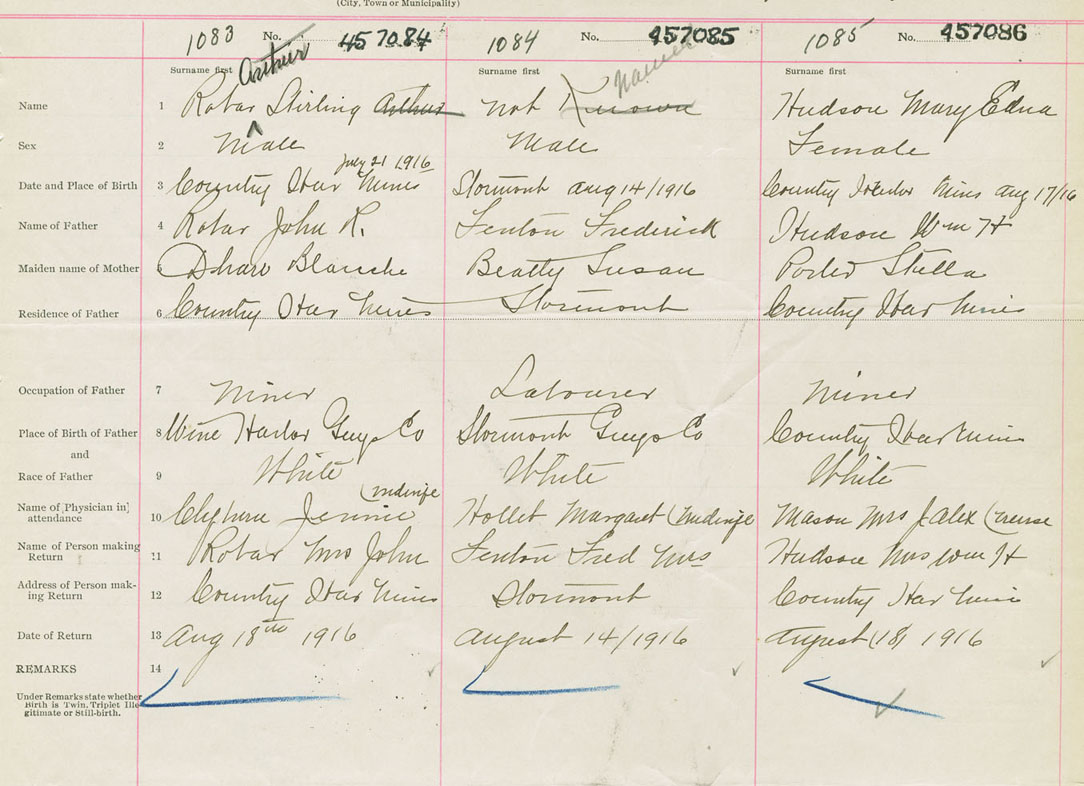 (City, Town or Municipality)
1083 No. 457084 1084 No. 457085 1085 No. 457086
Surname first Arthur Surname first named Surname first
Name 1 Robar Stirling Arthur not Known Hudson Mary Edna
Sex 2 Male Male Female
July 21 1916
Date and Place of Birth 3 Country Har Mines Stormont Aug 14/1916 Country Harbor Mines Aug 17/16
Name of Father 4 Robar John R. Fenton Frederick Hudson Wm H
Maiden name of Mother 5 Blanche Beatty Susan Porter Stella
Residence of Father 6 Country Har Mines Stormont Country Har Mines
Occupation of Father 7 Miner Labourer Miner
Place of Birth of Father 8 Wine Harbor Guys Co Stormont Guys Co Country Har Mines
and
Race of Father 9 White White White
(midwife
Name of [Physician in] attendance 10 Jennie Hollet Margaret (midwife Mason Mrs J. Alex (nurse
Name of Person making Return 11 Robar Mrs John Fenton Fred Mrs Hudson Mrs Wm H
Address of Person making Return 12 Country Har Mines Stormont Country Har Mines
Date of Return 13 Aug 18th 1916 August 14/1916 August (18) 1916
REMARKS 14
Under Remarks state whether
Birth is Twin, Triplet Ille
gitimate or Still-birth.